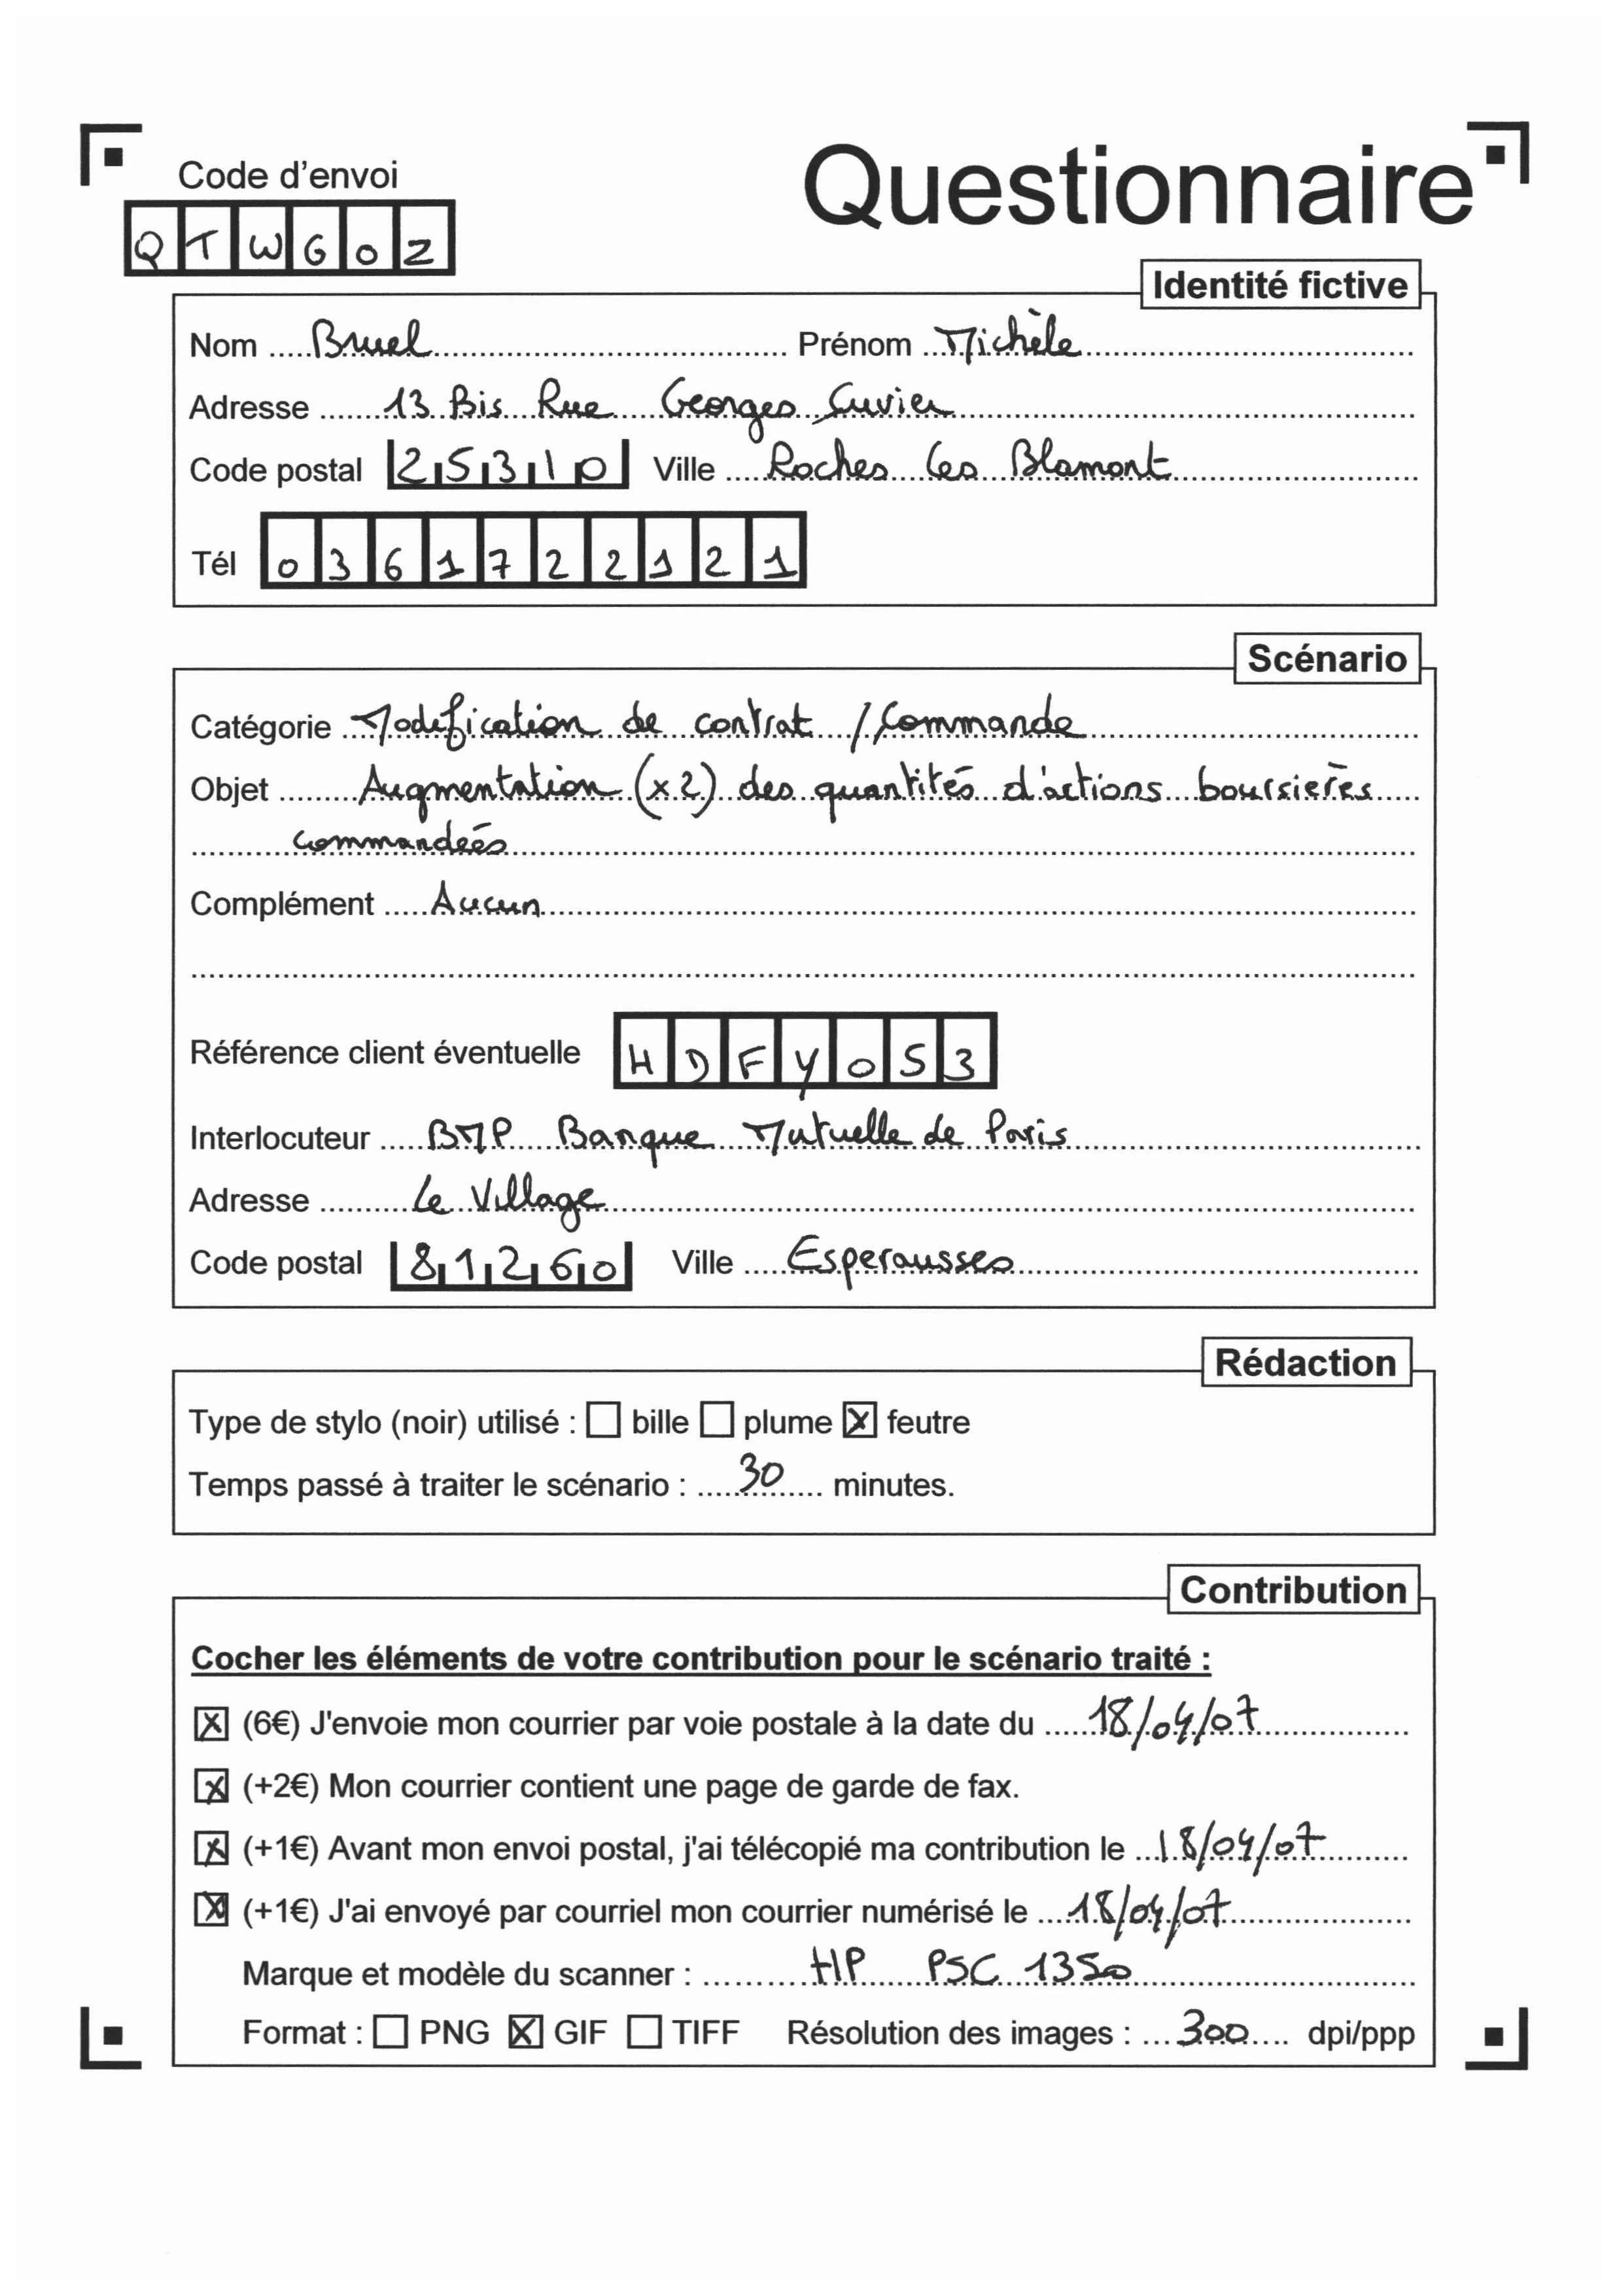 Questionnaire
Code d'envoi
QTWG0Z
Identité fictive
Nom Bruel Prénom Michèle
Adresse 13 Bis Rue Georges Cuvier
Code postal 25310 Ville Roches les Blamont
Tél 0361722121
Scénario
Catégorie Modification de contrat / Commande
Objet Augmentation (x2) des quantités d'actions boursières
commandées
Complément Aucun
Référence client éventuelle HDFY053
Interlocuteur BMP Banque Mutuelle de Paris
Adresse Le Village
Code postal 81260 Ville Esperausses
Rédaction
Type de stylo (noir) utilisé : bille plume feutre
Temps passé à traiter le scénario : 30 minutes.
Contribution
Cocher les éléments de votre contribution pour le scénario traité :
(6€) J'envoie mon courrier par voie postale à la date du 18/04/07
(+2€) Mon courrier contient une page de garde de fax.
(+1€) Avant mon envoi postal, j'ai télécopié ma contribution le 18/04/07
(+1€) J'ai envoyé par courriel mon courrier numérisé le 18/04/07
Marque et modèle du scanner : HP PSC 1350
Format : PNG GIF TIFF Résolution des images : 300 dpi/ppp